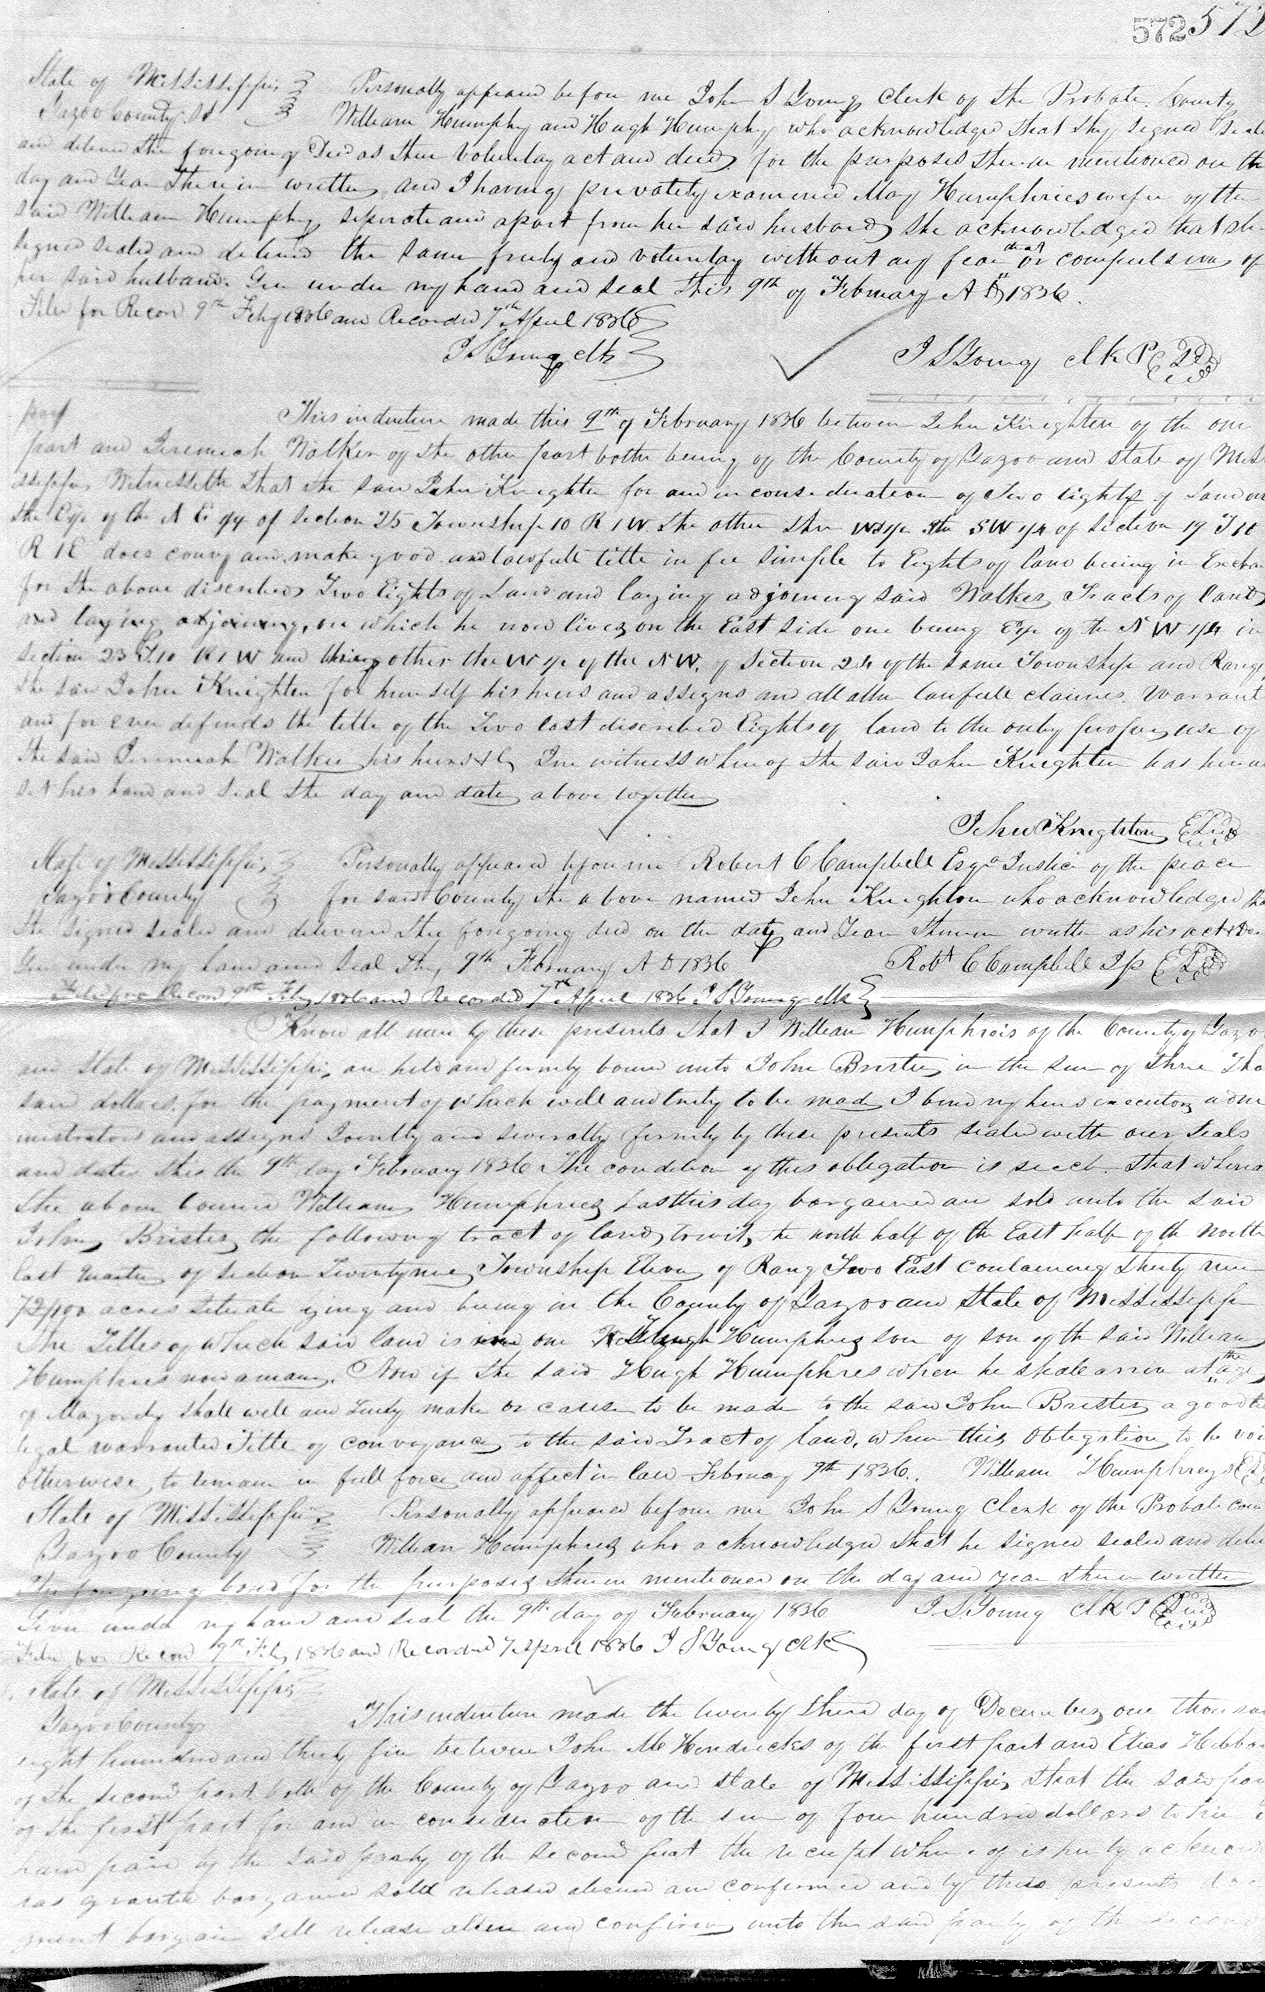 572 572
State of Mississippi Personally appeared before me John S Young Clerk of the Probate County
Yazoo County Sct William Humphry and Hugh Humphry who acknowledged that they signed seale
and deliverd the foregoing Deed as their voluntary act and deed for the purposes therein mentioned on the
day and year therein written and I having privately examined May Humphries wife of the
said William Humphry seperate and apart from her said husband she acknowledged that she
signed sealed and deliverd the same freely and voluntary without any fear that or compulsion of
her said husband. Given under my hand and seal this 9th of February A D 1836.
Filed for Record 9th Feby 1836 and Recorded 7th April 1836
J S Young clk J S Young clk P C
part This indenture made this 9th of February 1836 between John Knighten of the one
part and Jeremiah Walker of the other part both being of the County of Yazoo and State of Mis
sissippi Witnesseth that the said John Knighten for and in consideration of Two Eights of Land on
the E½ of the N E ¼ of Section 25 Township 10 R 1 W the other the W ½ the S W ¼ of Section 19 T 10
R 1 E does convey and make good and lawfull title in fee simple to Eights of land being in Excha
for the above discribed Two Eights of Land and laying adjoining said Walker Tracts of land
and laying adjoining, on which he now lives on the East side one being E½ of the N W ¼ in
section 23 T 10 R 1 W and other the W ½ of the N W. of Section 24 of the same Township and Range
the said John Knighten for himself his heirs and assigns and all other lawfull claimes Warrant
and for ever defends the title of the Two last discribed Eights of land to the only proper use of
the said Jeremiah Walker his heirs &c In witness whereof the said John Knighten has hereun
set his hand and Seal the day and date above written
John Knighten
State of Mississippi Personally appeared before me Robert C Campbell Esqr Justice of the peace
Yazoo County for said County the above named John Knighton who acknowledged tha
he signed sealed and deliverd the foregoing deed on the date and Year therein written as his act & Dee
Given under my hand and Seal this 9th February A D 1836 Robt C Campbell J P
Filed for Record 9th Feby 1836 and Recorded 7th April 1836 J S Young clk
Know all men by these presents that I William Humphries of the County of Yazo
and State of Mississippi am held and firmly bound unto John Brister in the sum of three Tho
sand dollars for the payment of which well and truly to be made I bind my heirs executors adm
inistrators and assigns Jointly and severally firmly by these presents sealed with our seals
and dated this the 9th day February 1836 The condition of this obligation is such. that wheras
the above bound William Humphries has this day bargained and sold unto the said
John Brister the following tract of land towit, the north half of the East half of the North
East quarter of Section Twenty nine Township Eleven of Range Two East containing thirty nine
72/100 acres situate lying and being in the County of Yazoo and State of Mississippi
The Titles of which said land is now one Hugh Humphries son of son of the said William
Humphries now a minor. Now if the said Hugh Humphres when he shall arrive at the age
of Majority shall well and truly make or cause to be made to the said John Brister a good &
legal warranted Title of conveyance to the said Tract of land, when this Obligation to be void
otherwise to remain in full force and affect in law February 9th 1836. William Humphreys
State of Mississippi Personally appeared before me John S Young Clerk of the Probate cour
Yazoo County William Humphries who acknowledged that he signed sealed and deliv
the foregoing bond for the purposes therein mentioned on the day and year therein written
Given under my hand and seal the 9th day of February 1836 J. S Young clk P
Filed for Record 9th Feby 1836 and Recorded 7 April 1836 J S Young clk
State of Mississippi
Yazoo County This indenture made the twenty third day of December one thousand
eight hundred and thirty five between John M Hendricks of the first part and Elias Hibbar
of the second part both of the County of Yazoo and State of Mississippi that the said par
of the first part for and in consideration of the sum of four hundred dollars to him in
hand paid by the said party of the second part the receipt whereof is hereby acknow
has granted bargained sold released aliend and confirmed and by these presents doe
grant bargain sell release alien and confirm unto the said party of the second